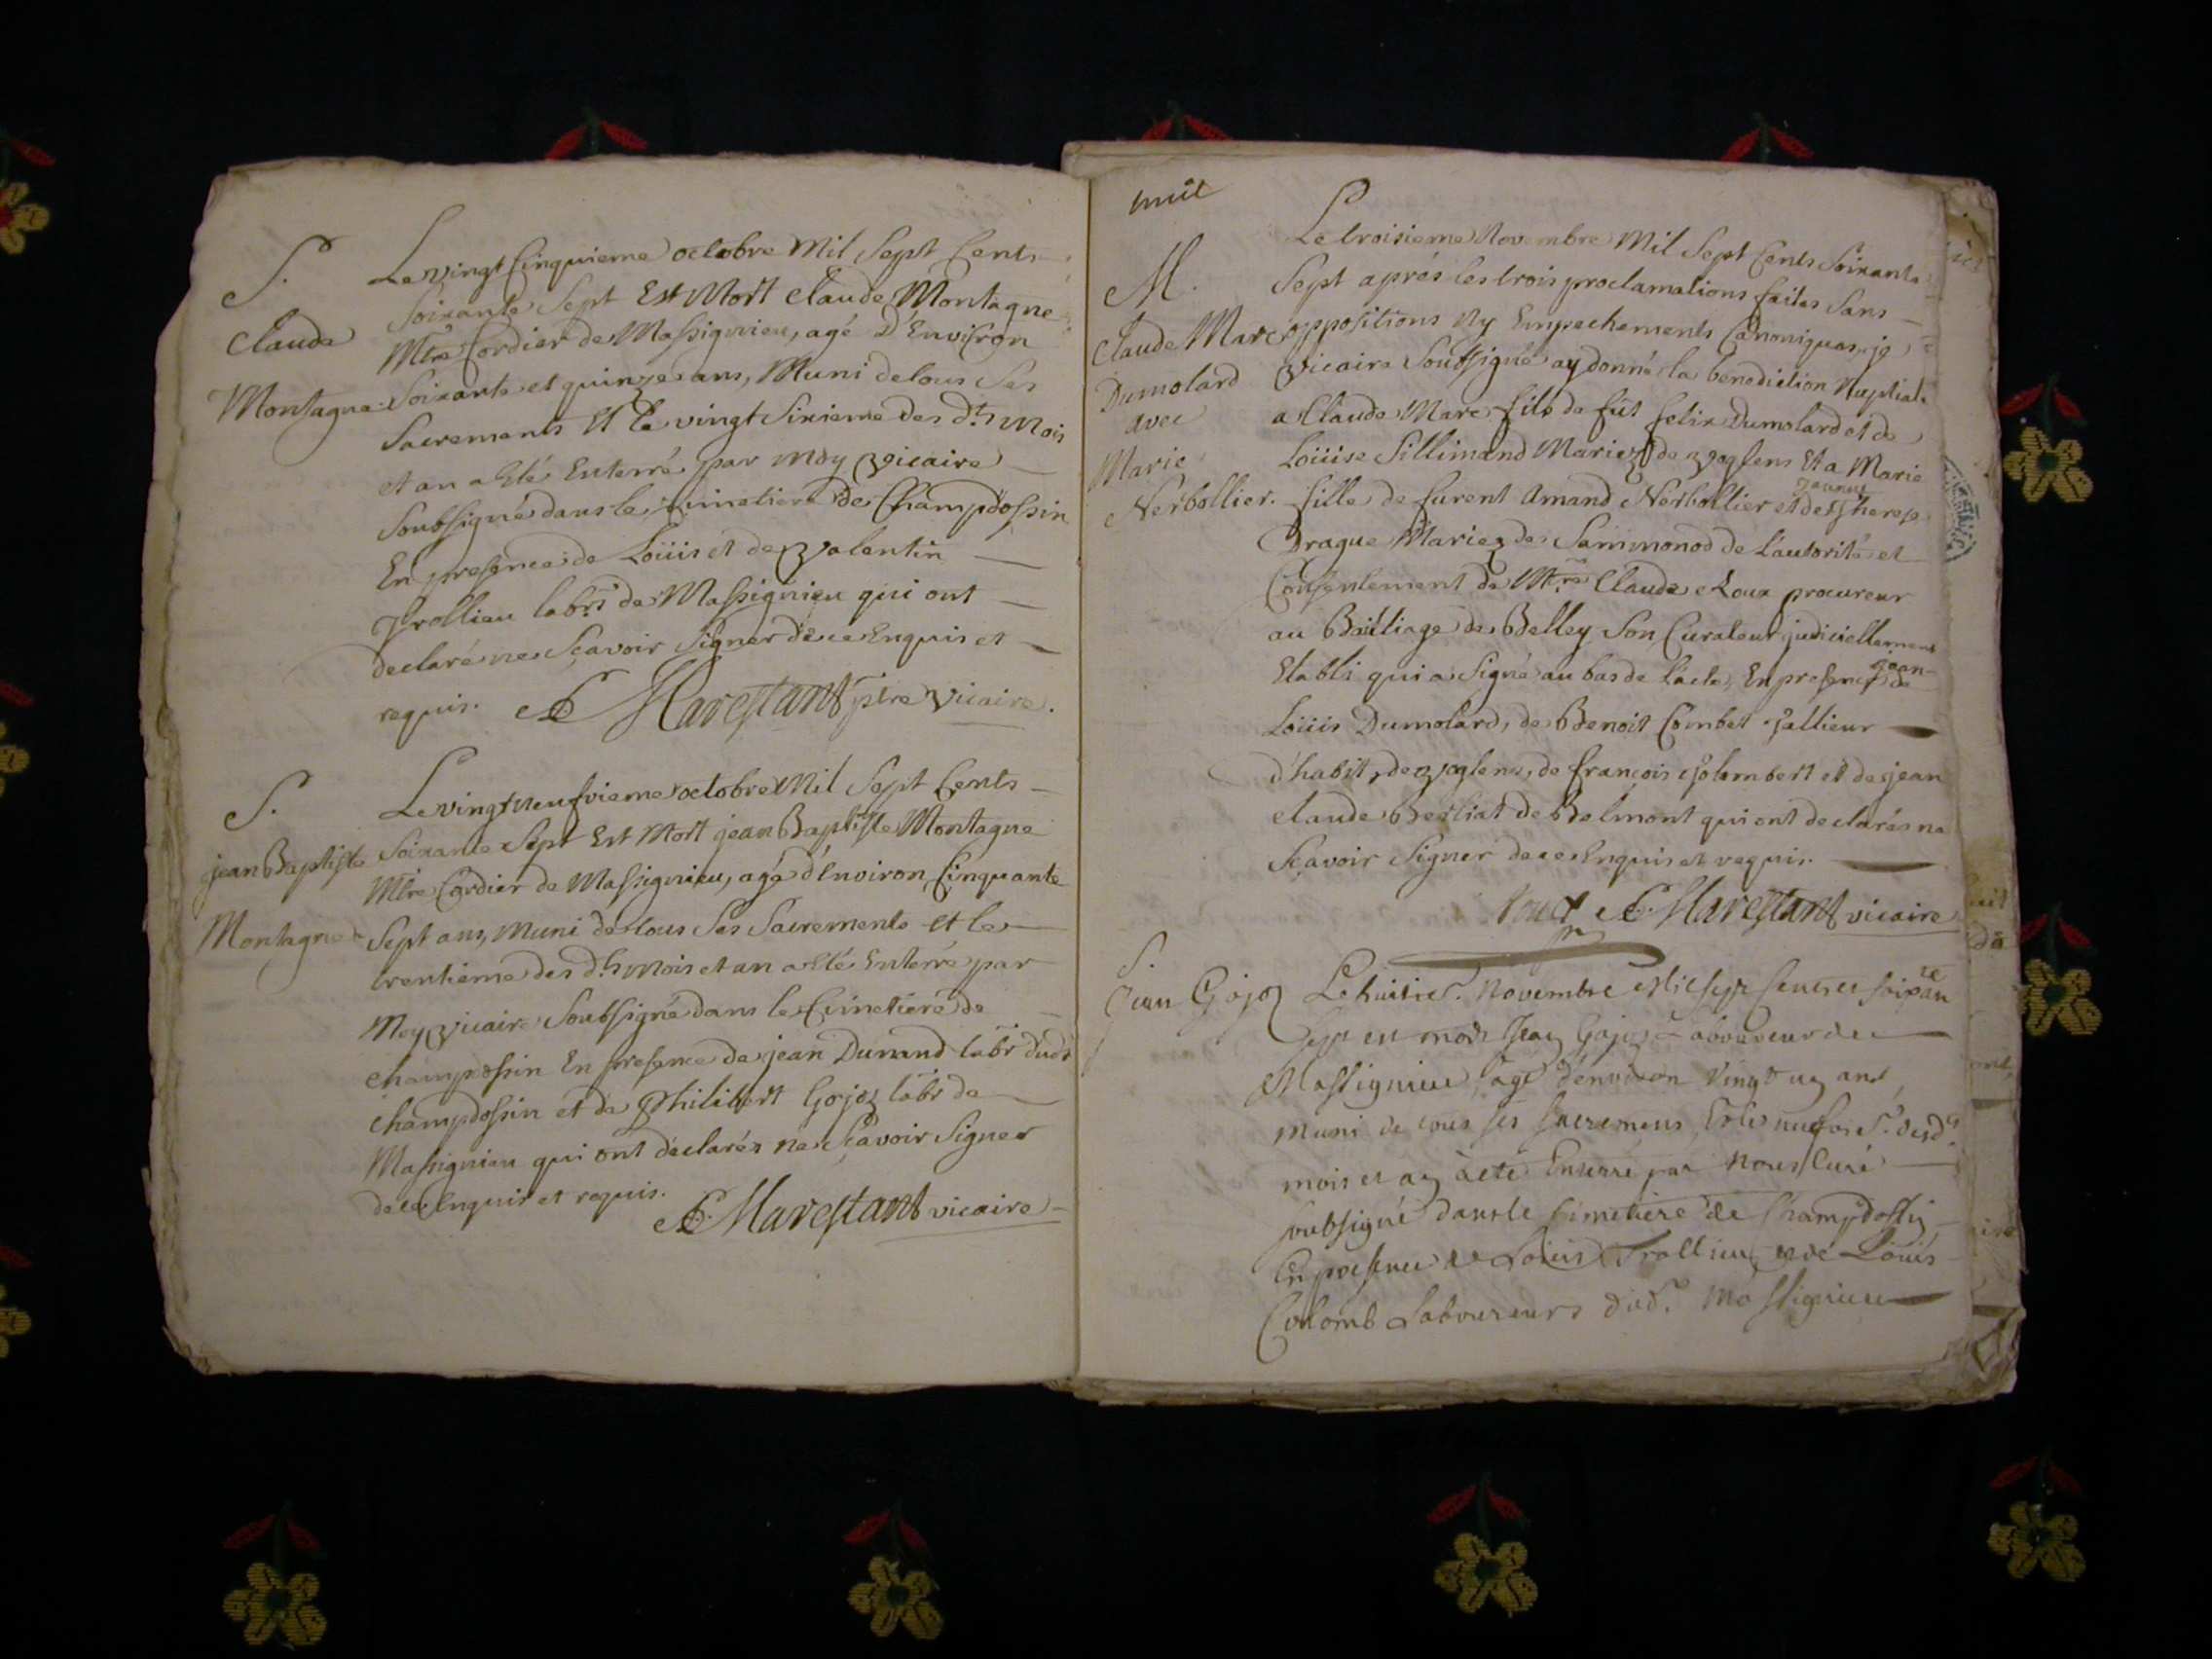 S.
Claude
Montagne
Le vingt Cinquieme octobre Mil Sept Cents
Soixante Sept Est Mort Claude Montagne
Mtre Cordier de Massignieu, agé D'Environ
Soixante et quinze ans, Muni de tous Ses
Sacrements Et le vingt Sixieme des dts Mois
et an a Eté Enterré par Moy Vicaire
Soubsigné dans le Cimetiere de Champdossin
En presence de Loüis et de Valentin
Trollieu labrs de Massignieu qui ont
declaré ne Sçavoir Signer de ce Enquis et
requis. Marestant ptre Vicaire.
S.
jean Baptiste
Montagne
Le vingt neufvieme octobre Mil Sept Cents
Soixante Sept Est Mort jean Baptiste Montagne
Mtre Cordier de Massignieu, agé d'Environ Cinquante
Sept ans, Muni de tous Ses Sacrements Et le
trentieme des dts mois et an a Eté Enterré par
Moy Vicaire Soubsigné dans le Cimetiere de
Champdossin En presence de jean Durand labr dudt
Champdossin et de Philibert Gojoz labr de
Massignieu qui ont déclarés ne Sçavoir Signer
de ce Enquis et requis. Marestant vicaire
huit
M.
Claude Marc
Dumolard
avec
Marie
Nerbollier.
Le troisieme Novembre Mil Sept Cents Soixante
Sept aprés les trois proclamations faites Sans
oppositions Ny Empechements Canoniques, je
Vicaire Soubsigné ay donné la benediction Nuptiale
a Claude Marc fils de fut felix Dumolard et de
Loüise Sillimand Mariez de Voglens Et a Marie
fille de furent Amand Nerbollier et de jeanne Therese
Drague Mariez de Sammonod de L'autorité et
Consentement de Mtre Claude Roux procureur
au Bailliage de Belley Son Curateur judiciellement
Etabli qui a Signé au bas de l'acte, En presence de jean
Loüis Dumolard, de Benoit Combet tallieur
d'habit, de Voglens, de françois Colombert et de jean
claude Berliat de Belmont qui ont declarés ne
Sçavoir Signer de ce Enquis et requis.
Roux Marestant vicaire
S.
Jean Gojoz
Le huitie. Novembre Mil sept cents et soixante
sept est mort Jean Gojoz Laboureur de
Massignieu, agé d'environ Vingt un ans,
muni de tous ses sacremens, Et le neufvie. desds
mois et an a eté Enterré par Nous Curé
soubsigné dans le Cimetiere de Champdossin
En presence de Loüis Trollieu et de Loüis
Colomb Laboureurs dud. Massignieu